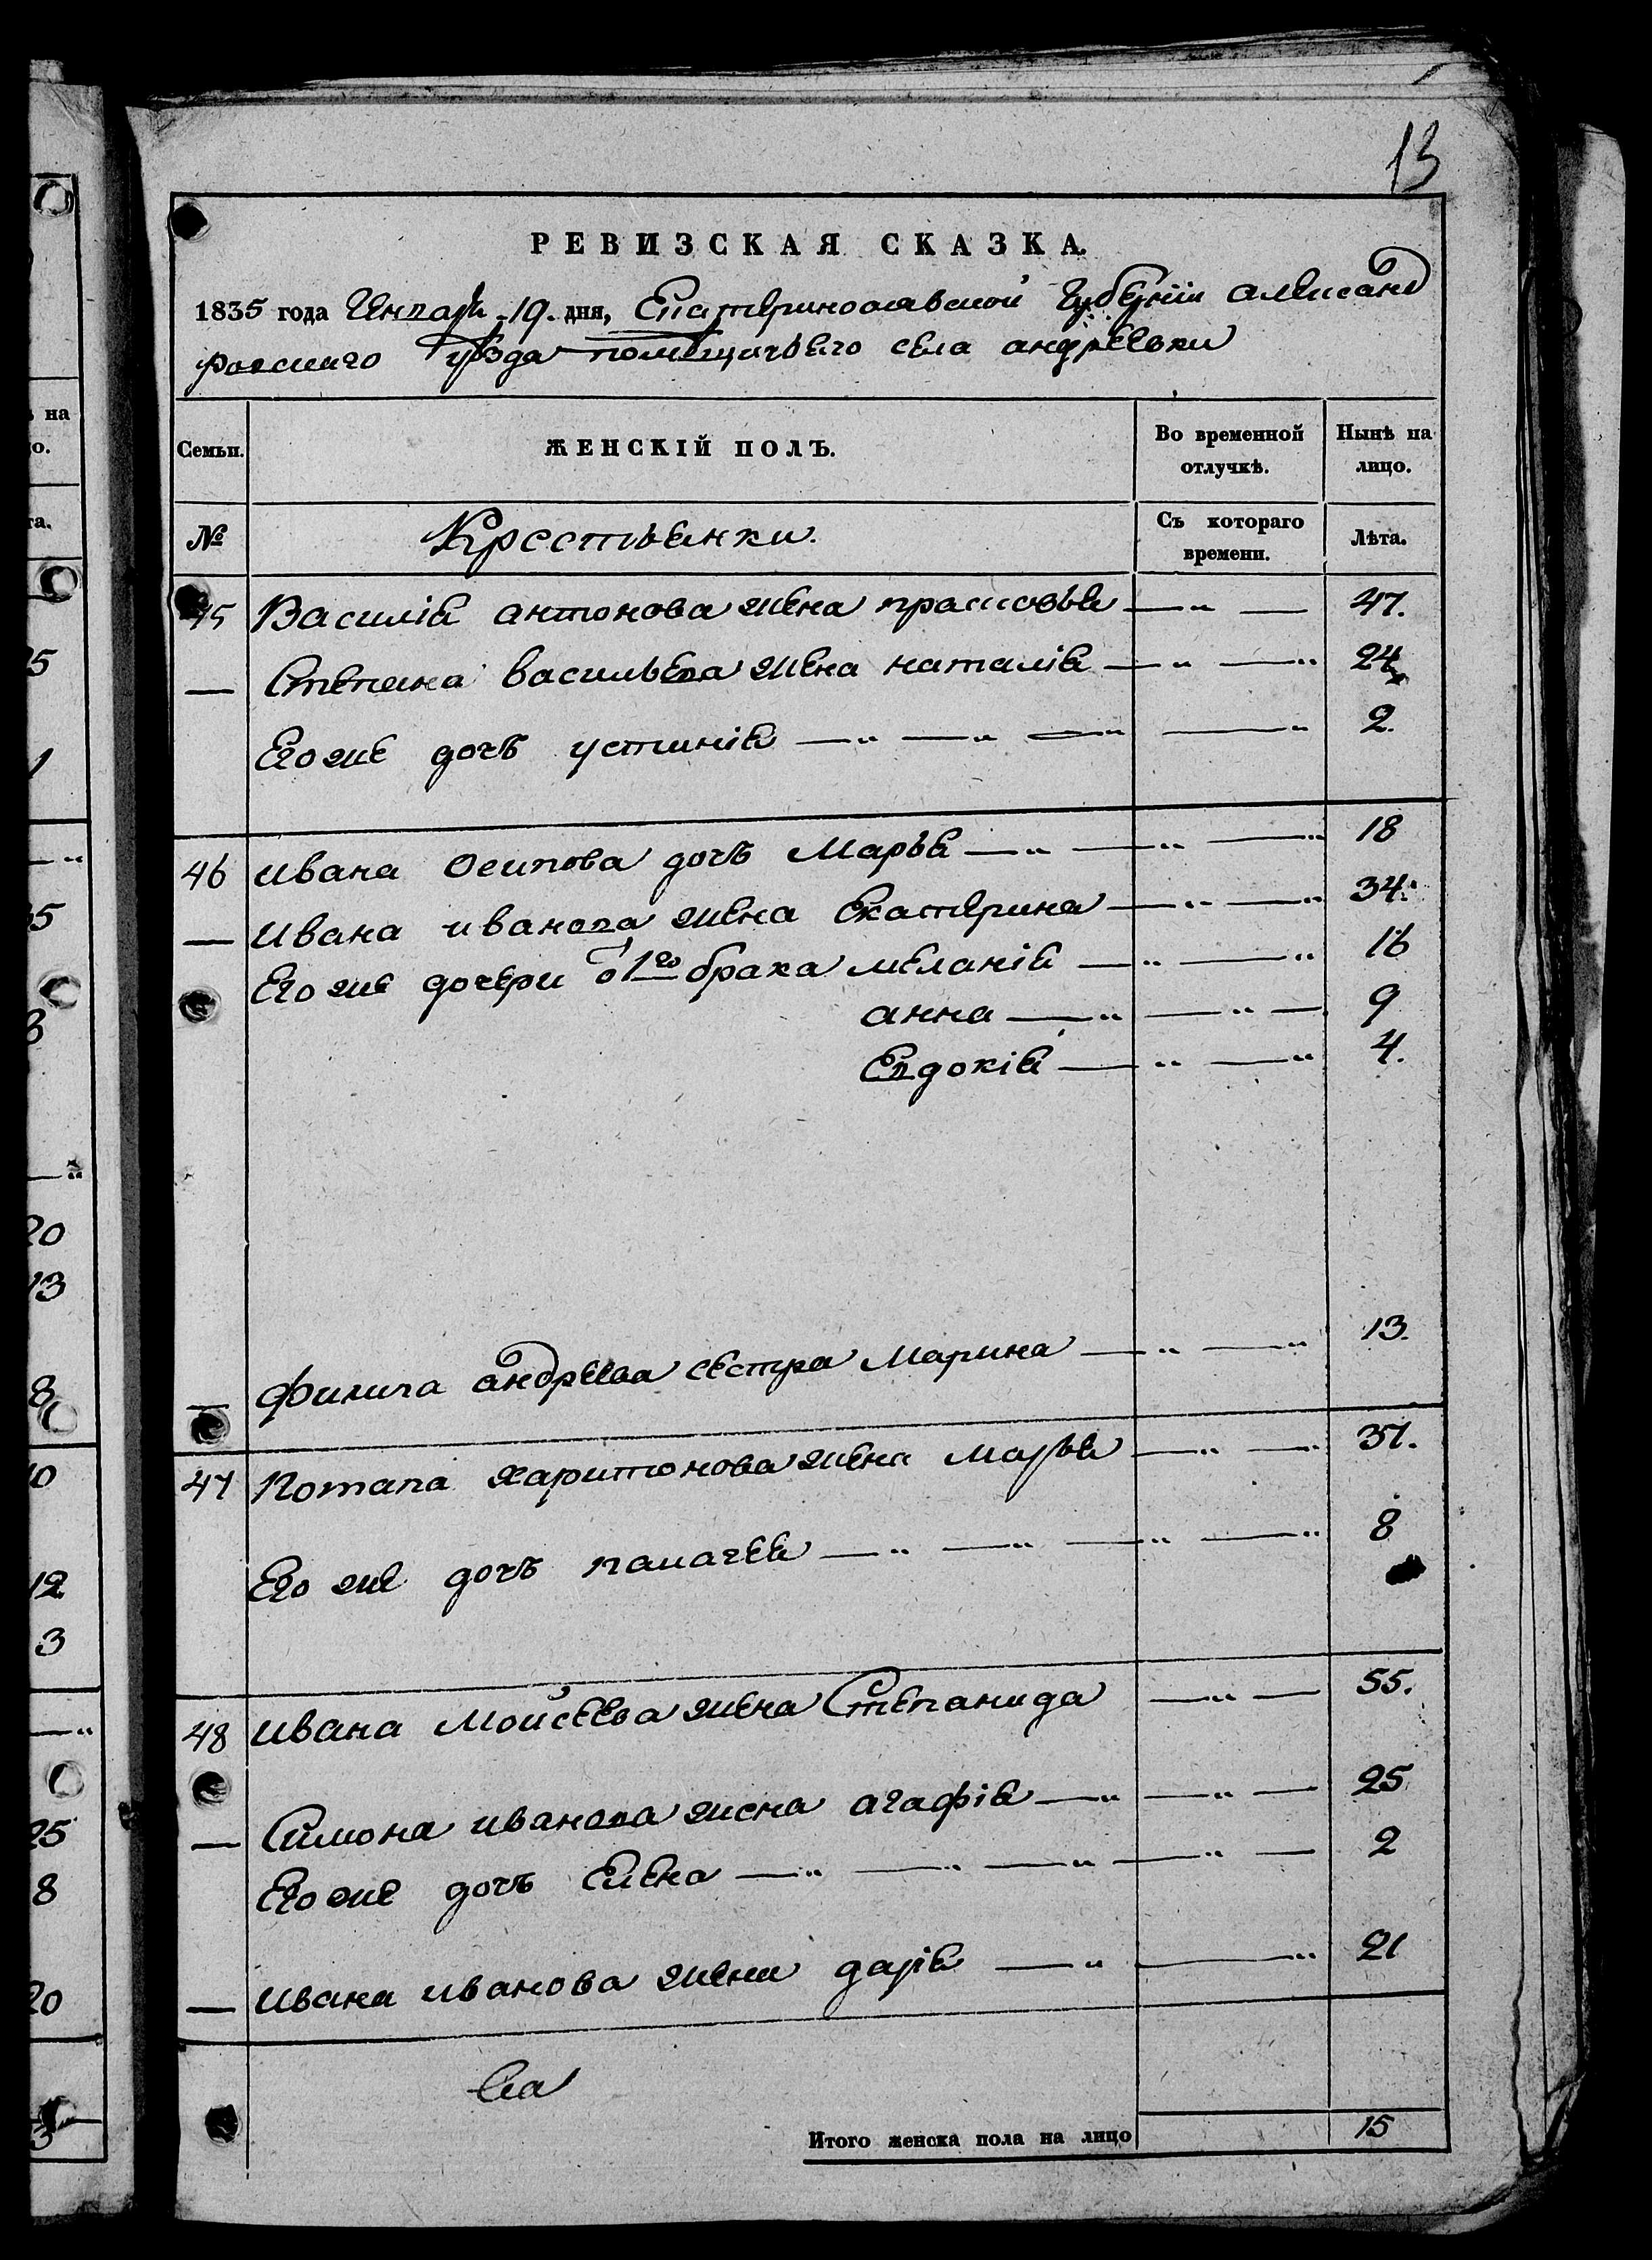 13
РЕВИЗСКАЯ СКАЗКА.
1835 года Генваря 19. дня, Екатеринославской Губерніи александ
ровскаго уѣзда помѣщичьяго села андрѣевки
Семьи. ЖЕНСКІЙ ПОЛЪ. Во временной отлучкѣ. Нынѣ на лицо.
№ Крестьянки. Съ котораго времени. Лѣта.
45 Василія антонова жена прасковья 47.
— Степана васильева жена наталія 24
Его же дочь устинія 2.
46 Ивана Осипова дочь Марья 18
— Ивана иванова жена Екатерина 34.
Его же дочери о 1го брака меланія 16
анна 9
Евдокія 4.
— Филипа андреева сестра Марина 13.
47 Потапа харитонова жена Марья 37.
Его же дочь палагея 8
48 Ивана Мойсеева жена Степанида 55.
— Симона иванова жена агафія 25
Его же дочь Елена 2
— Ивана иванова жена дарія 21
Итого женска пола на лицо 15